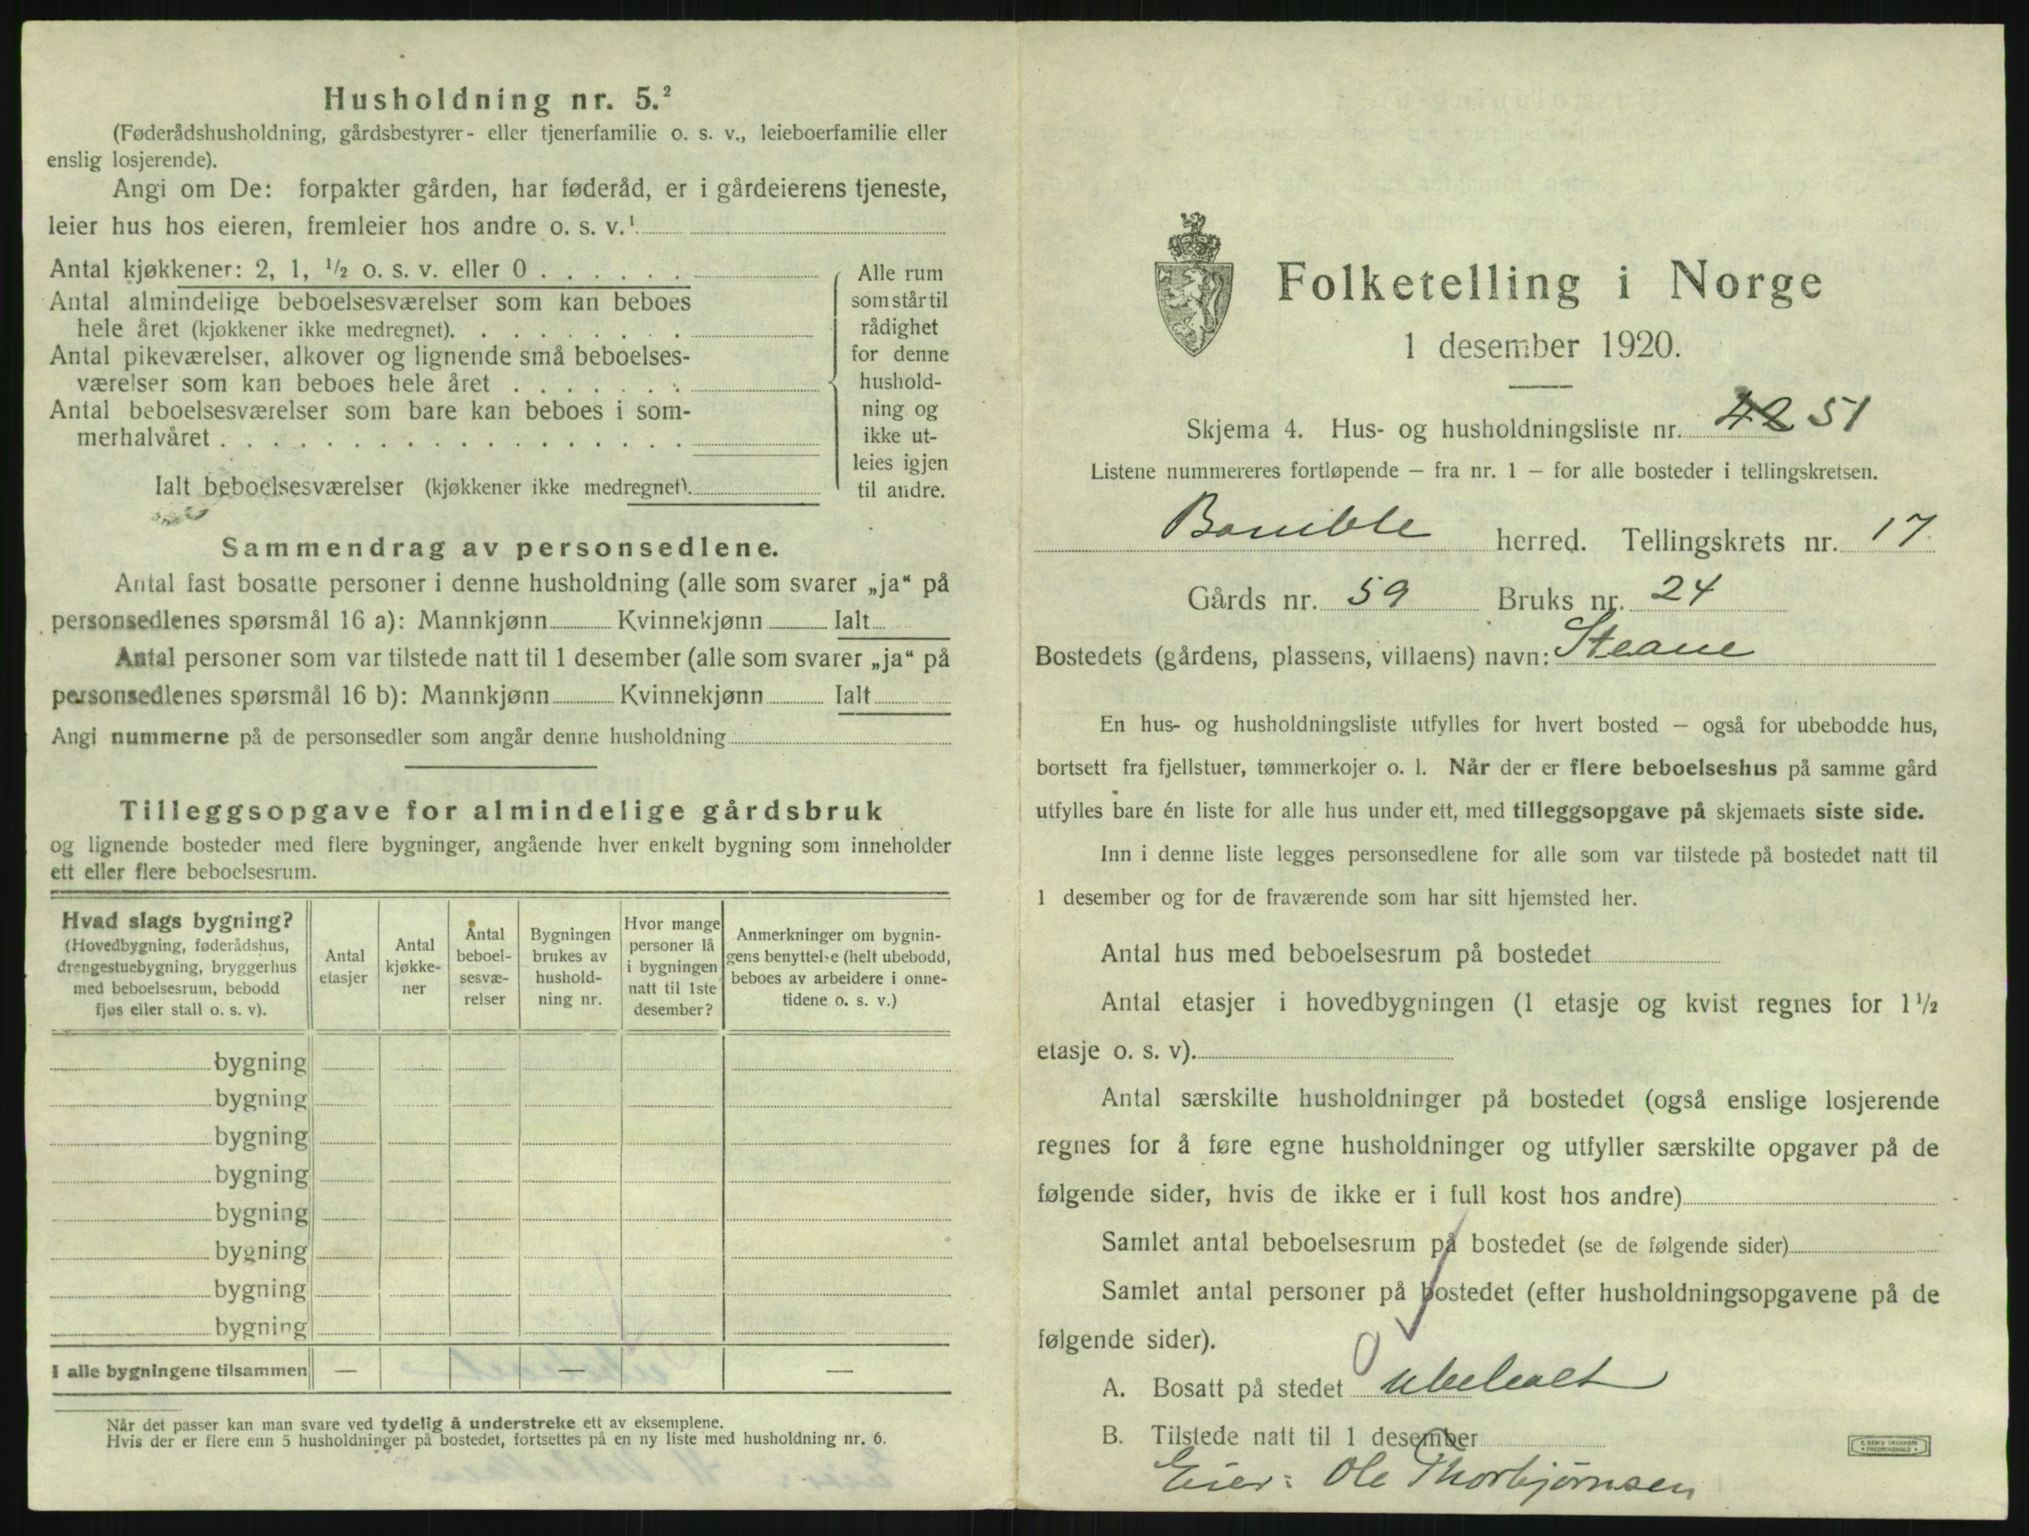 Husholdning nr. 5.²
(Føderådshusholdning, gårdsbestyrer- eller tjenerfamilie o. s. v., leieboerfamilie eller
enslig losjerende).
Angi om De: forpakter gården, har føderåd, er i gårdeierens tjeneste,
leier hus hos eieren, fremleier hos andre o. s. v.¹
Antal kjøkkener: 2, 1, ½ o. s. v. eller 0 . . . . . .
Antal almindelige beboelsesværelser som kan beboes
hele året (kjøkkener ikke medregnet). . . . . . . . .
Antal pikeværelser, alkover og lignende små beboelses-
værelser som kan beboes hele året . . . . . . .
Antal beboelsesværelser som bare kan beboes i som-
merhalvåret . . . . . . . . . . . . . . . . . .
Ialt beboelsesværelser (kjøkkener ikke medregnet).
Alle rum
som står til
rådighet
for denne
hushold-
ning og
ikke ut-
leies igjen
til andre.
Sammendrag av personsedlene.
Antal fast bosatte personer i denne husholdning (alle som svarer „ja“ på
personsedlenes spørsmål 16 a): Mannkjønn Kvinnekjønn Ialt
Antal personer som var tilstede natt til 1 desember (alle som svarer „ja“ på
personsedlenes spørsmål 16 b): Mannkjønn Kvinnekjønn Ialt
Angi nummerne på de personsedler som angår denne husholdning
Tilleggsopgave for almindelige gårdsbruk
og lignende bosteder med flere bygninger, angående hver enkelt bygning som inneholder
ett eller flere beboelsesrum.
Hvad slags bygning?
(Hovedbygning, føderådshus,
drengestuebygning, bryggerhus
med beboelsesrum, bebodd
fjøs eller stall o. s. v).
Antal
etasjer
Antal
kjøkke-
ner
Antal
beboel-
sesvæ-
relser
Bygningen
brukes av
hushold-
ning nr.
Hvor mange
personer lå
i bygningen
natt til 1ste
desember?
Anmerkninger om bygnin-
gens benyttelse (helt ubebodd,
beboes av arbeidere i onne-
tidene o. s. v.)
bygning
bygning
bygning
bygning
bygning
bygning
bygning
bygning
I alle bygningene tilsammen — — —
Når det passer kan man svare ved tydelig å understreke ett av eksemplene.
Hvis der er flere enn 5 husholdninger på bostedet, fortsettes på en ny liste med husholdning nr. 6.
Folketelling i Norge
1 desember 1920.
Skjema 4. Hus- og husholdningsliste nr. 42 51
Listene nummereres fortløpende – fra nr. 1 – for alle bosteder i tellingskretsen.
Bamble herred. Tellingskrets nr. 17
Gårds nr. 59 Bruks nr. 24
Bostedets (gårdens, plassens, villaens) navn: Steane
En hus- og husholdningsliste utfylles for hvert bosted – også for ubebodde hus,
bortsett fra fjellstuer, tømmerkojer o. l. Når der er flere beboelseshus på samme gård
utfylles bare én liste for alle hus under ett, med tilleggsopgave på skjemaets siste side.
Inn i denne liste legges personsedlene for alle som var tilstede på bostedet natt til
1 desember og for de fraværende som har sitt hjemsted her.
Antal hus med beboelsesrum på bostedet
Antal etasjer i hovedbygningen (1 etasje og kvist regnes for 1½
etasje o. s. v).
Antal særskilte husholdninger på bostedet (også enslige losjerende
regnes for å føre egne husholdninger og utfyller særskilte opgaver på de
følgende sider, hvis de ikke er i full kost hos andre)
Samlet antal beboelsesrum på bostedet (se de følgende sider)
Samlet antal personer på bostedet (efter husholdningsopgavene på de
følgende sider).
A. Bosatt på stedet 0 ubebodt
B. Tilstede natt til 1 desember
Eier: Ole Thorbjørnsen